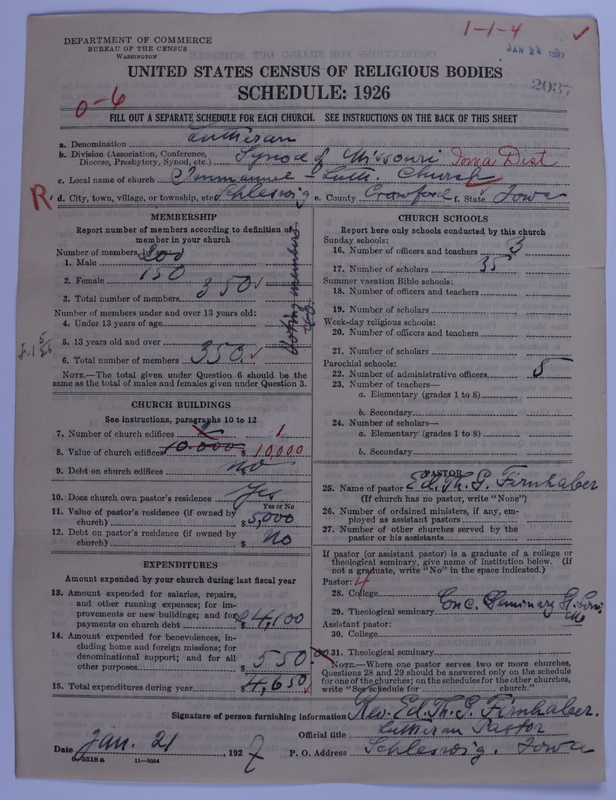 1-1-4
JAN 24 1927
DEPARTMENT OF COMMERCE
BUREAU OF THE CENSUS
WASHINGTON
2037
UNITED STATES CENSUS OF RELIGIOUS BODIES
SCHEDULE: 1926
0-6
FILL OUT A SEPARATE SCHEDULE FOR EACH CHURCH. SEE INSTRUCTIONS ON THE BACK OF THIS SHEET
a. Denomination Lutheran
b. Division (Association, Conference, Diocese, Presbytery, Synod, etc.) Synod of Missouri Iowa Dist
c. Local name of church Immanuel - Luth. Church
R. d. City, town, village, or township, etc. Schleswig e. County Crawford f. State Iowa
MEMBERSHIP
Report number of members according to definition of
member in your church
Number of members, by sex:
1. Male 200
150
2. Female
3. Total number of members 350
Number of members under and over 13 years old:
4. Under 13 years of age
5. 13 years old and over
6. Total number of members 350
Voting members
NOTE.—The total given under Question 6 should be
same as the total of males and females given under Question 3.
CHURCH BUILDINGS
See instructions, paragraphs 10 to 12
7. Number of church edifices 1
8. Value of church edifices 10.000 $ 10,000
9. Debt on church edifices no
10. Does church own pastor's residence Yes
Yes or No
11. Value of pastor's residence (if owned by
church) $ 5,000
12. Debt on pastor's residence (if owned by
church) $ No
EXPENDITURES
Amount expended by your church during last fiscal year
13. Amount expended for salaries, repairs,
and other running expenses; for im-
provements or new buildings; and for
payments on church debt $ 4,100
14. Amount expended for benevolences, in-
cluding home and foreign missions; for
denominational support; and for all
other purposes $ 550.00
15. Total expenditures during year $ 4,650
CHURCH SCHOOLS
Report here only schools conducted by this church
Sunday schools:
16. Number of officers and teachers 3
17. Number of scholars 35
Summer vacation Bible schools:
18. Number of officers and teachers
19. Number of scholars
Week-day religious schools:
20. Number of officers and teachers
21. Number of scholars
Parochial schools:
22. Number of administrative officers 5
23. Number of teachers—
a. Elementary (grades 1 to 8)
b. Secondary
24. Number of scholars—
a. Elementary (grades 1 to 8)
b. Secondary
PASTOR
25. Name of pastor Ed. Th. G. Firnhaber
(If church has no pastor, write "None")
26. Number of ordained ministers, if any, em-
ployed as assistant pastors
27. Number of other churches served by the
pastor or his assistants
If pastor (or assistant pastor) is a graduate of a college or
theological seminary, give name of institution below. (If
not a graduate, write "No" in the space indicated.)
Pastor: 4
28. College
29. Theological seminary Conc. Seminary St. Louis Mo
Assistant pastor:
30. College
31. Theological seminary
NOTE.—Where one pastor serves two or more churches,
Questions 28 and 29 should be answered only on the schedule
for one of the churches; on the schedules for the other churches,
write "See schedule for church."
Signature of person furnishing information Rev. Ed. Th. G. Firnhaber.
Official title Lutheran Pastor
Date Jan. 21 1927 P. O. Address Schleswig, Iowa
8-5518a 11—9064